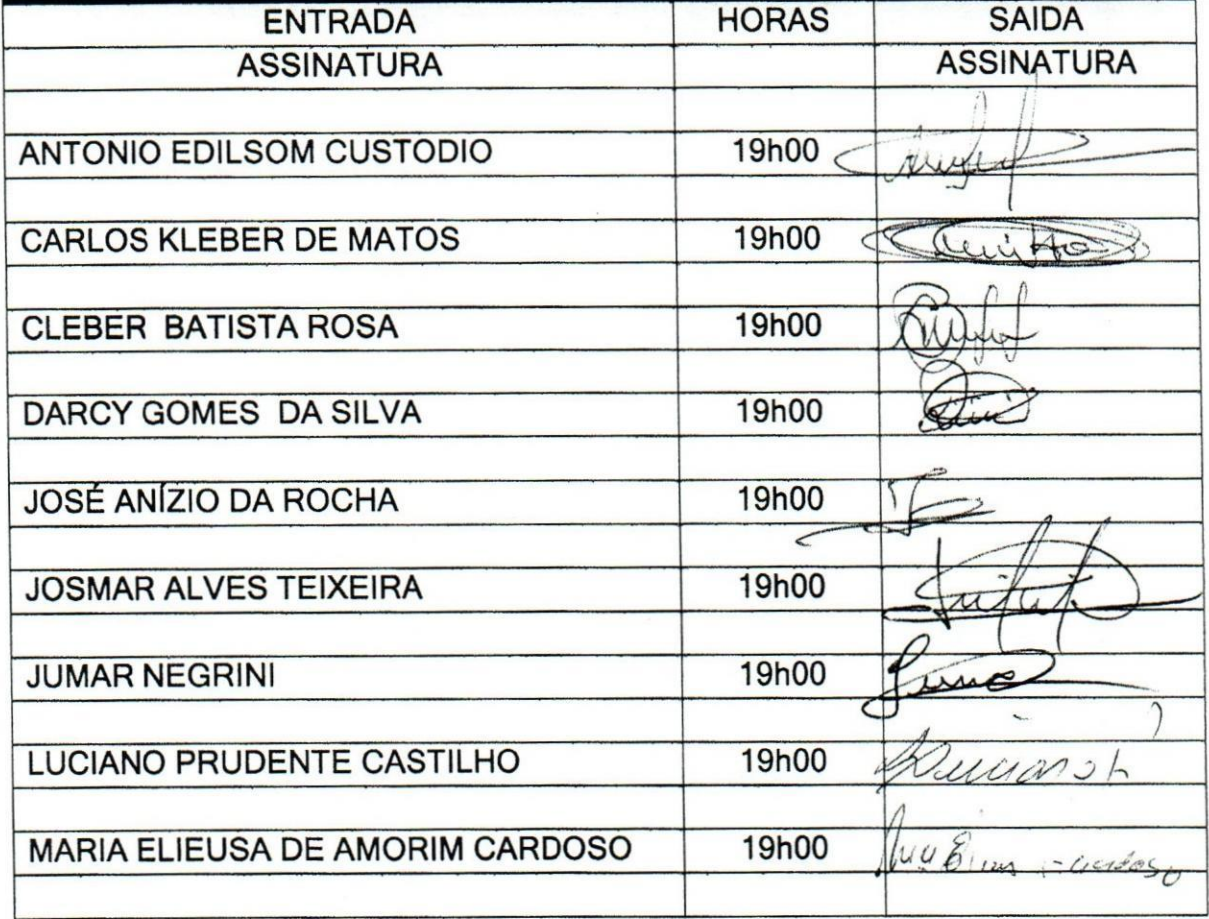 ENTRADA HORAS SAIDA
ASSINATURA ASSINATURA
ANTONIO EDILSOM CUSTODIO 19h00
CARLOS KLEBER DE MATOS 19h00
CLEBER BATISTA ROSA 19h00
DARCY GOMES DA SILVA 19h00
JOSÉ ANÍZIO DA ROCHA 19h00
JOSMAR ALVES TEIXEIRA 19h00
JUMAR NEGRINI 19h00
LUCIANO PRUDENTE CASTILHO 19h00
MARIA ELIEUSA DE AMORIM CARDOSO 19h00